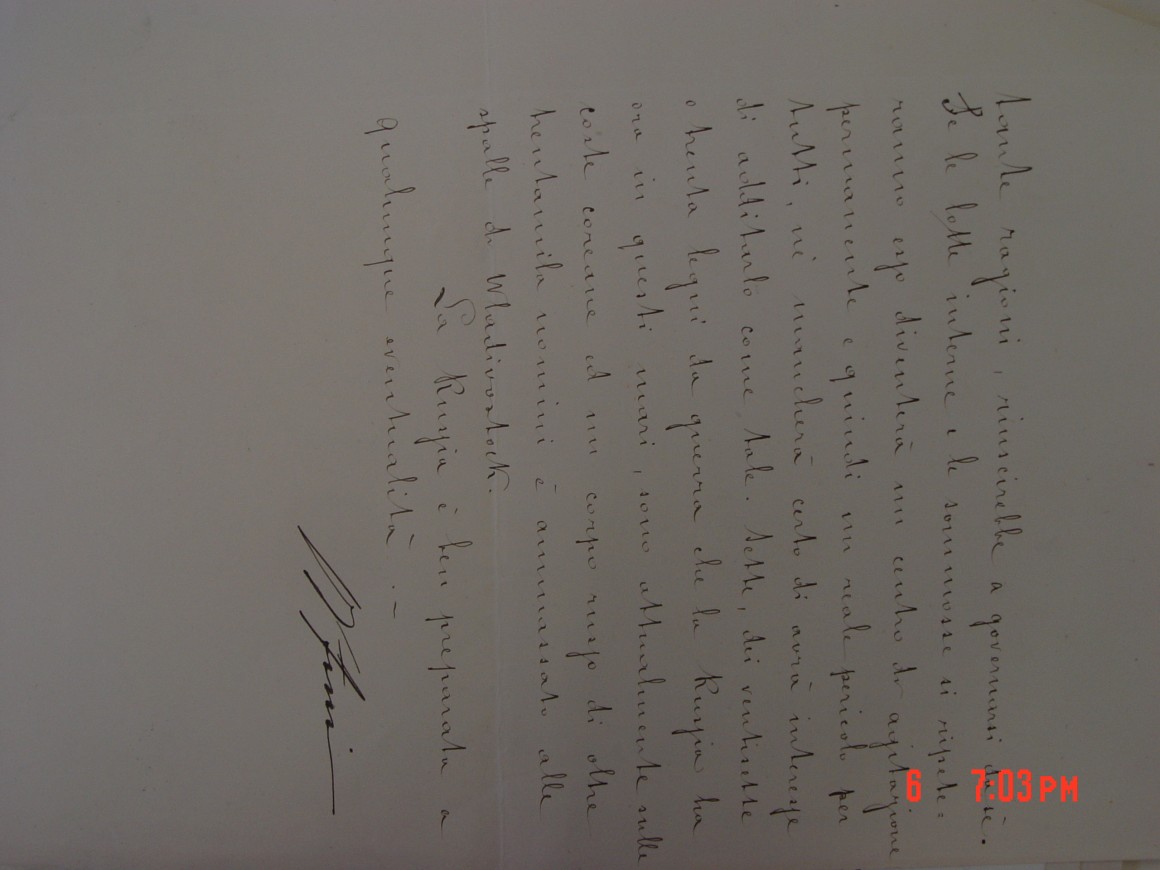 tante ragioni, riuscirebbe a governarsi da sè.
Se le lotte interne e le sommosse si ripete=
ranno esso diventerà un centro di agitazione
permanente e quindi un reale pericolo per
tutti, nè mancherà certo di avrà interesse
di additarlo come tale. Sette, dei ventisette
o trenta legni da guerra che la Russia ha
ora in questi mari, sono attualmente sulle
coste coreane ed un corpo russo di oltre
trentamila uomini è ammassato alle
spalle di Wladivostock.
La Russia è ben preparata a
qualunque eventualità. –
6 7:03 PM